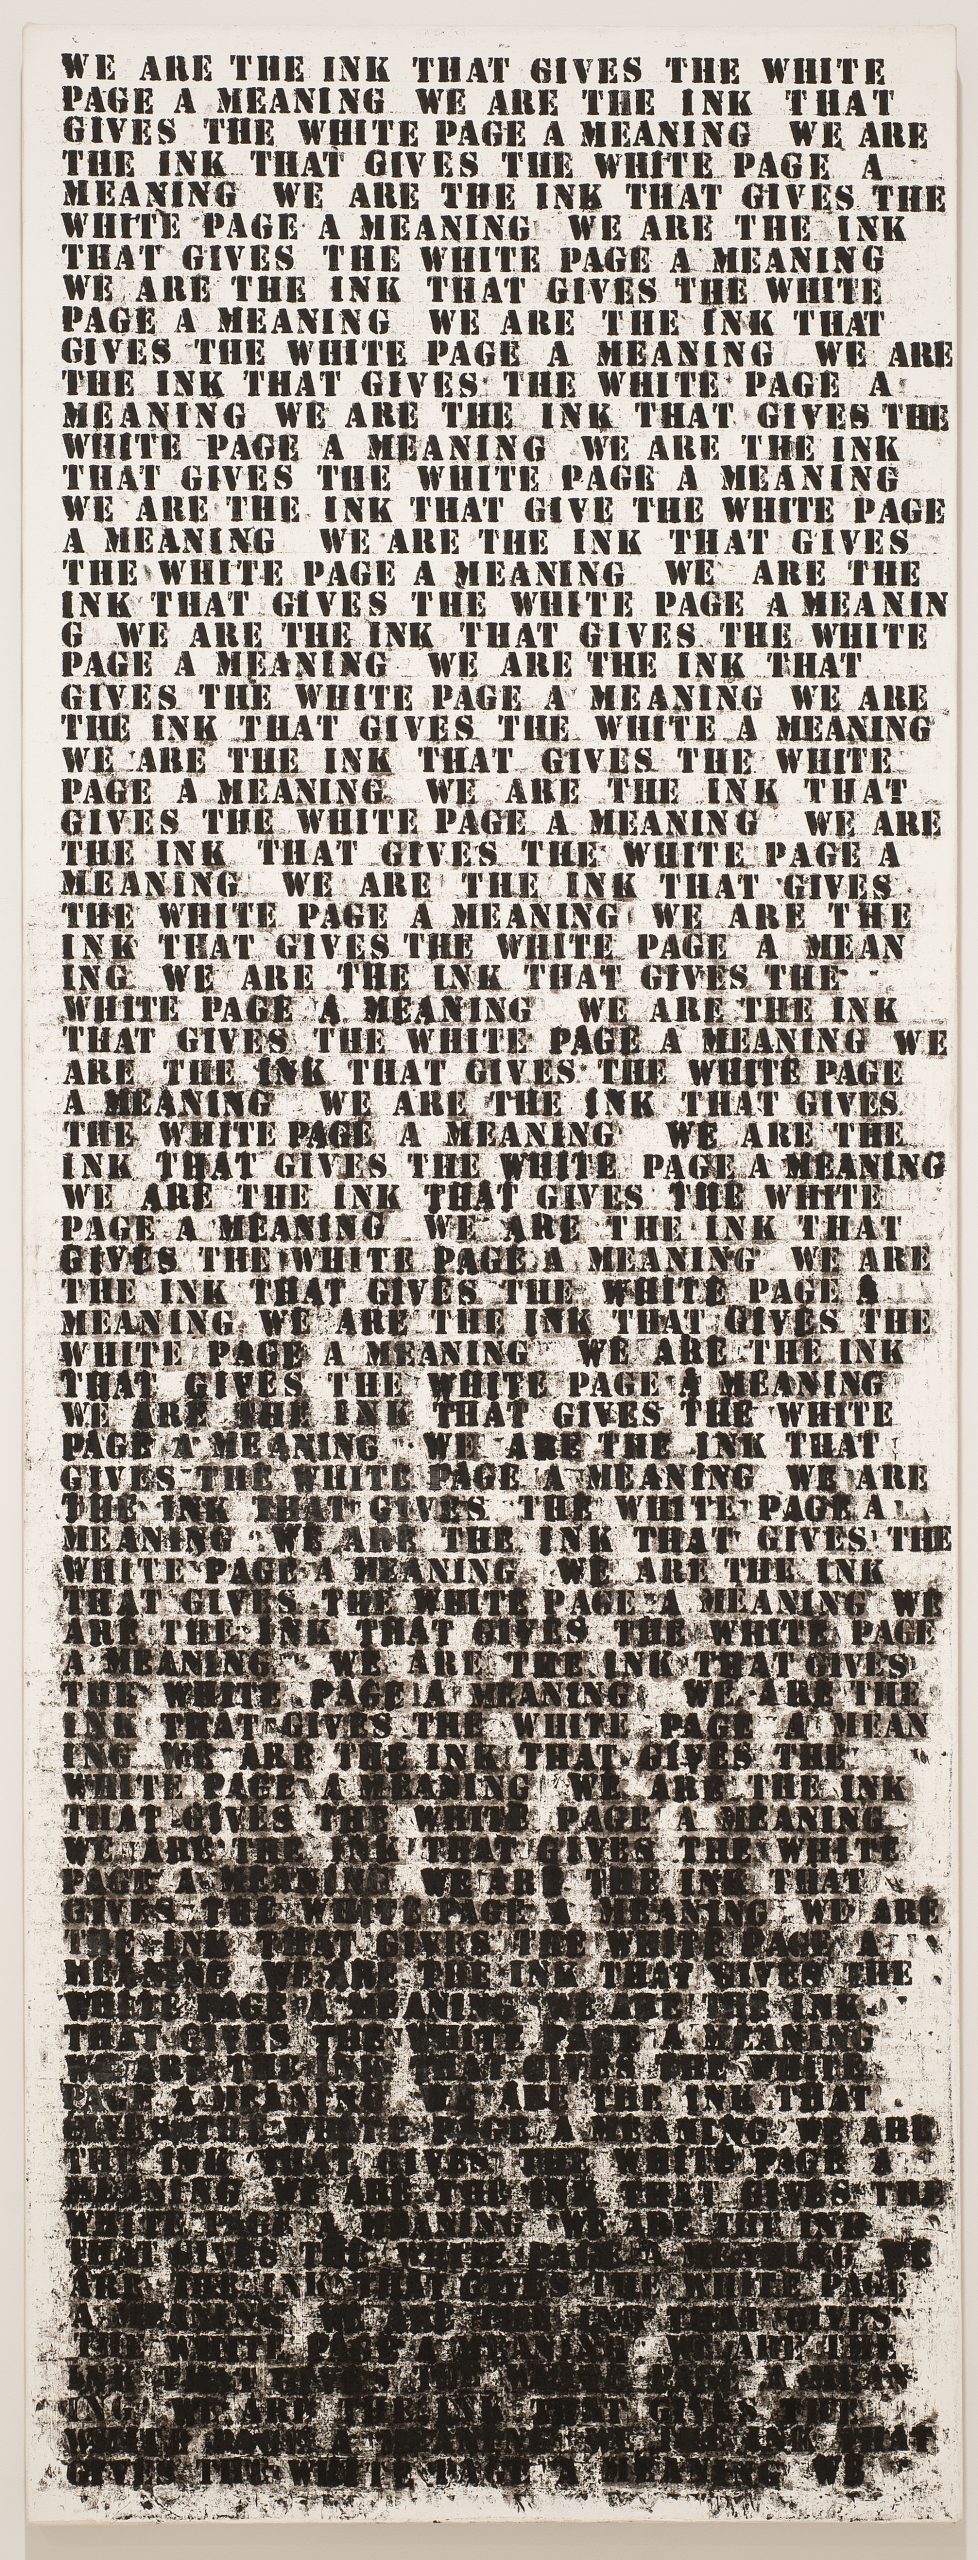 WE ARE THE INK THAT GIVES THE WHITE
PAGE A MEANING WE ARE THE INK THAT
GIVES THE WHITE PAGE A MEANING WE ARE
THE INK THAT GIVES THE WHITE PAGE A
MEANING WE ARE THE INK THAT GIVES THE
WHITE PAGE A MEANING WE ARE THE INK
THAT GIVES THE WHITE PAGE A MEANING
WE ARE THE INK THAT GIVES THE WHITE
PAGE A MEANING WE ARE THE INK THAT
GIVES THE WHITE PAGE A MEANING WE ARE
THE INK THAT GIVES THE WHITE PAGE A
MEANING WE ARE THE INK THAT GIVES THE
WHITE PAGE A MEANING WE ARE THE INK
THAT GIVES THE WHITE PAGE A MEANING
WE ARE THE INK THAT GIVE THE WHITE PAGE
A MEANING WE ARE THE INK THAT GIVES
THE WHITE PAGE A MEANING WE ARE THE
INK THAT GIVES THE WHITE PAGE A MEANIN
G WE ARE THE INK THAT GIVES THE WHITE
PAGE A MEANING WE ARE THE INK THAT
GIVES THE WHITE PAGE A MEANING WE ARE
THE INK THAT GIVES THE WHITE A MEANING
WE ARE THE INK THAT GIVES THE WHITE
PAGE A MEANING WE ARE THE INK THAT
GIVES THE WHITE PAGE A MEANING WE ARE
THE INK THAT GIVES THE WHITE PAGE A
MEANING WE ARE THE INK THAT GIVES
THE WHITE PAGE A MEANING WE ARE THE
INK THAT GIVES THE WHITE PAGE A MEAN
ING WE ARE THE INK THAT GIVES THE
WHITE PAGE A MEANING WE ARE THE INK
THAT GIVES THE WHITE PAGE A MEANING WE
ARE THE INK THAT GIVES THE WHITE PAGE
A MEANING WE ARE THE INK THAT GIVES
THE WHITE PAGE A MEANING WE ARE THE
INK THAT GIVES THE WHITE PAGE A MEANING
WE ARE THE INK THAT GIVES THE WHITE
PAGE A MEANING WE ARE THE INK THAT
GIVES THE WHITE PAGE A MEANING WE ARE
THE INK THAT GIVES THE WHITE PAGE A
MEANING WE ARE THE INK THAT GIVES THE
WHITE PAGE A MEANING WE ARE THE INK
THAT GIVES THE WHITE PAGE A MEANING
WE ARE THE INK THAT GIVES THE WHITE
PAGE A MEANING WE ARE THE INK THAT
GIVES THE WHITE PAGE A MEANING WE ARE
THE INK THAT GIVES THE WHITE PAGE A
MEANING WE ARE THE INK THAT GIVES THE
WHITE PAGE A MEANING WE ARE THE INK
THAT GIVES THE WHITE PAGE A MEANING WE
ARE THE INK THAT GIVES THE WHITE PAGE
A MEANING WE ARE THE INK THAT GIVES
THE WHITE PAGE A MEANING WE ARE THE
INK THAT GIVES THE WHITE PAGE A MEAN
ING WE ARE THE INK THAT GIVES THE
WHITE PAGE A MEANING WE ARE THE INK
THAT GIVES THE WHITE PAGE A MEANING
WE ARE THE INK THAT GIVES THE WHITE
PAGE A MEANING WE ARE THE INK THAT
GIVES THE WHITE PAGE A MEANING WE ARE
THE INK THAT GIVES THE WHITE PAGE A
MEANING WE ARE THE INK THAT GIVES THE
WHITE PAGE A MEANING WE ARE THE INK
THAT GIVES THE WHITE PAGE A MEANING
WE ARE THE INK THAT GIVES THE WHITE
PAGE A MEANING WE ARE THE INK THAT
GIVES THE WHITE PAGE A MEANING WE ARE
THE INK THAT GIVES THE WHITE PAGE A
MEANING WE ARE THE INK THAT GIVES THE
WHITE PAGE A MEANING WE ARE THE INK
THAT GIVES THE WHITE PAGE A MEANING WE
ARE THE INK THAT GIVES THE WHITE PAGE
A MEANING WE ARE THE INK THAT GIVES
THE WHITE PAGE A MEANING WE ARE THE
INK THAT GIVES THE WHITE PAGE A MEAN
ING WE ARE THE INK THAT GIVES THE
WHITE PAGE A MEANING WE THE INK THAT
GIVES THE WHITE PAGE A MEANING WE